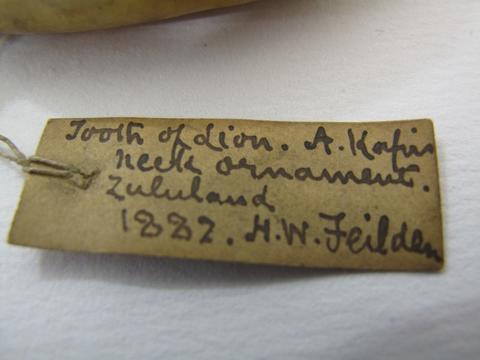 Tooth of Lion. A. Kafirs
neck ornament.
Zululand
1882. H.W. Feilden